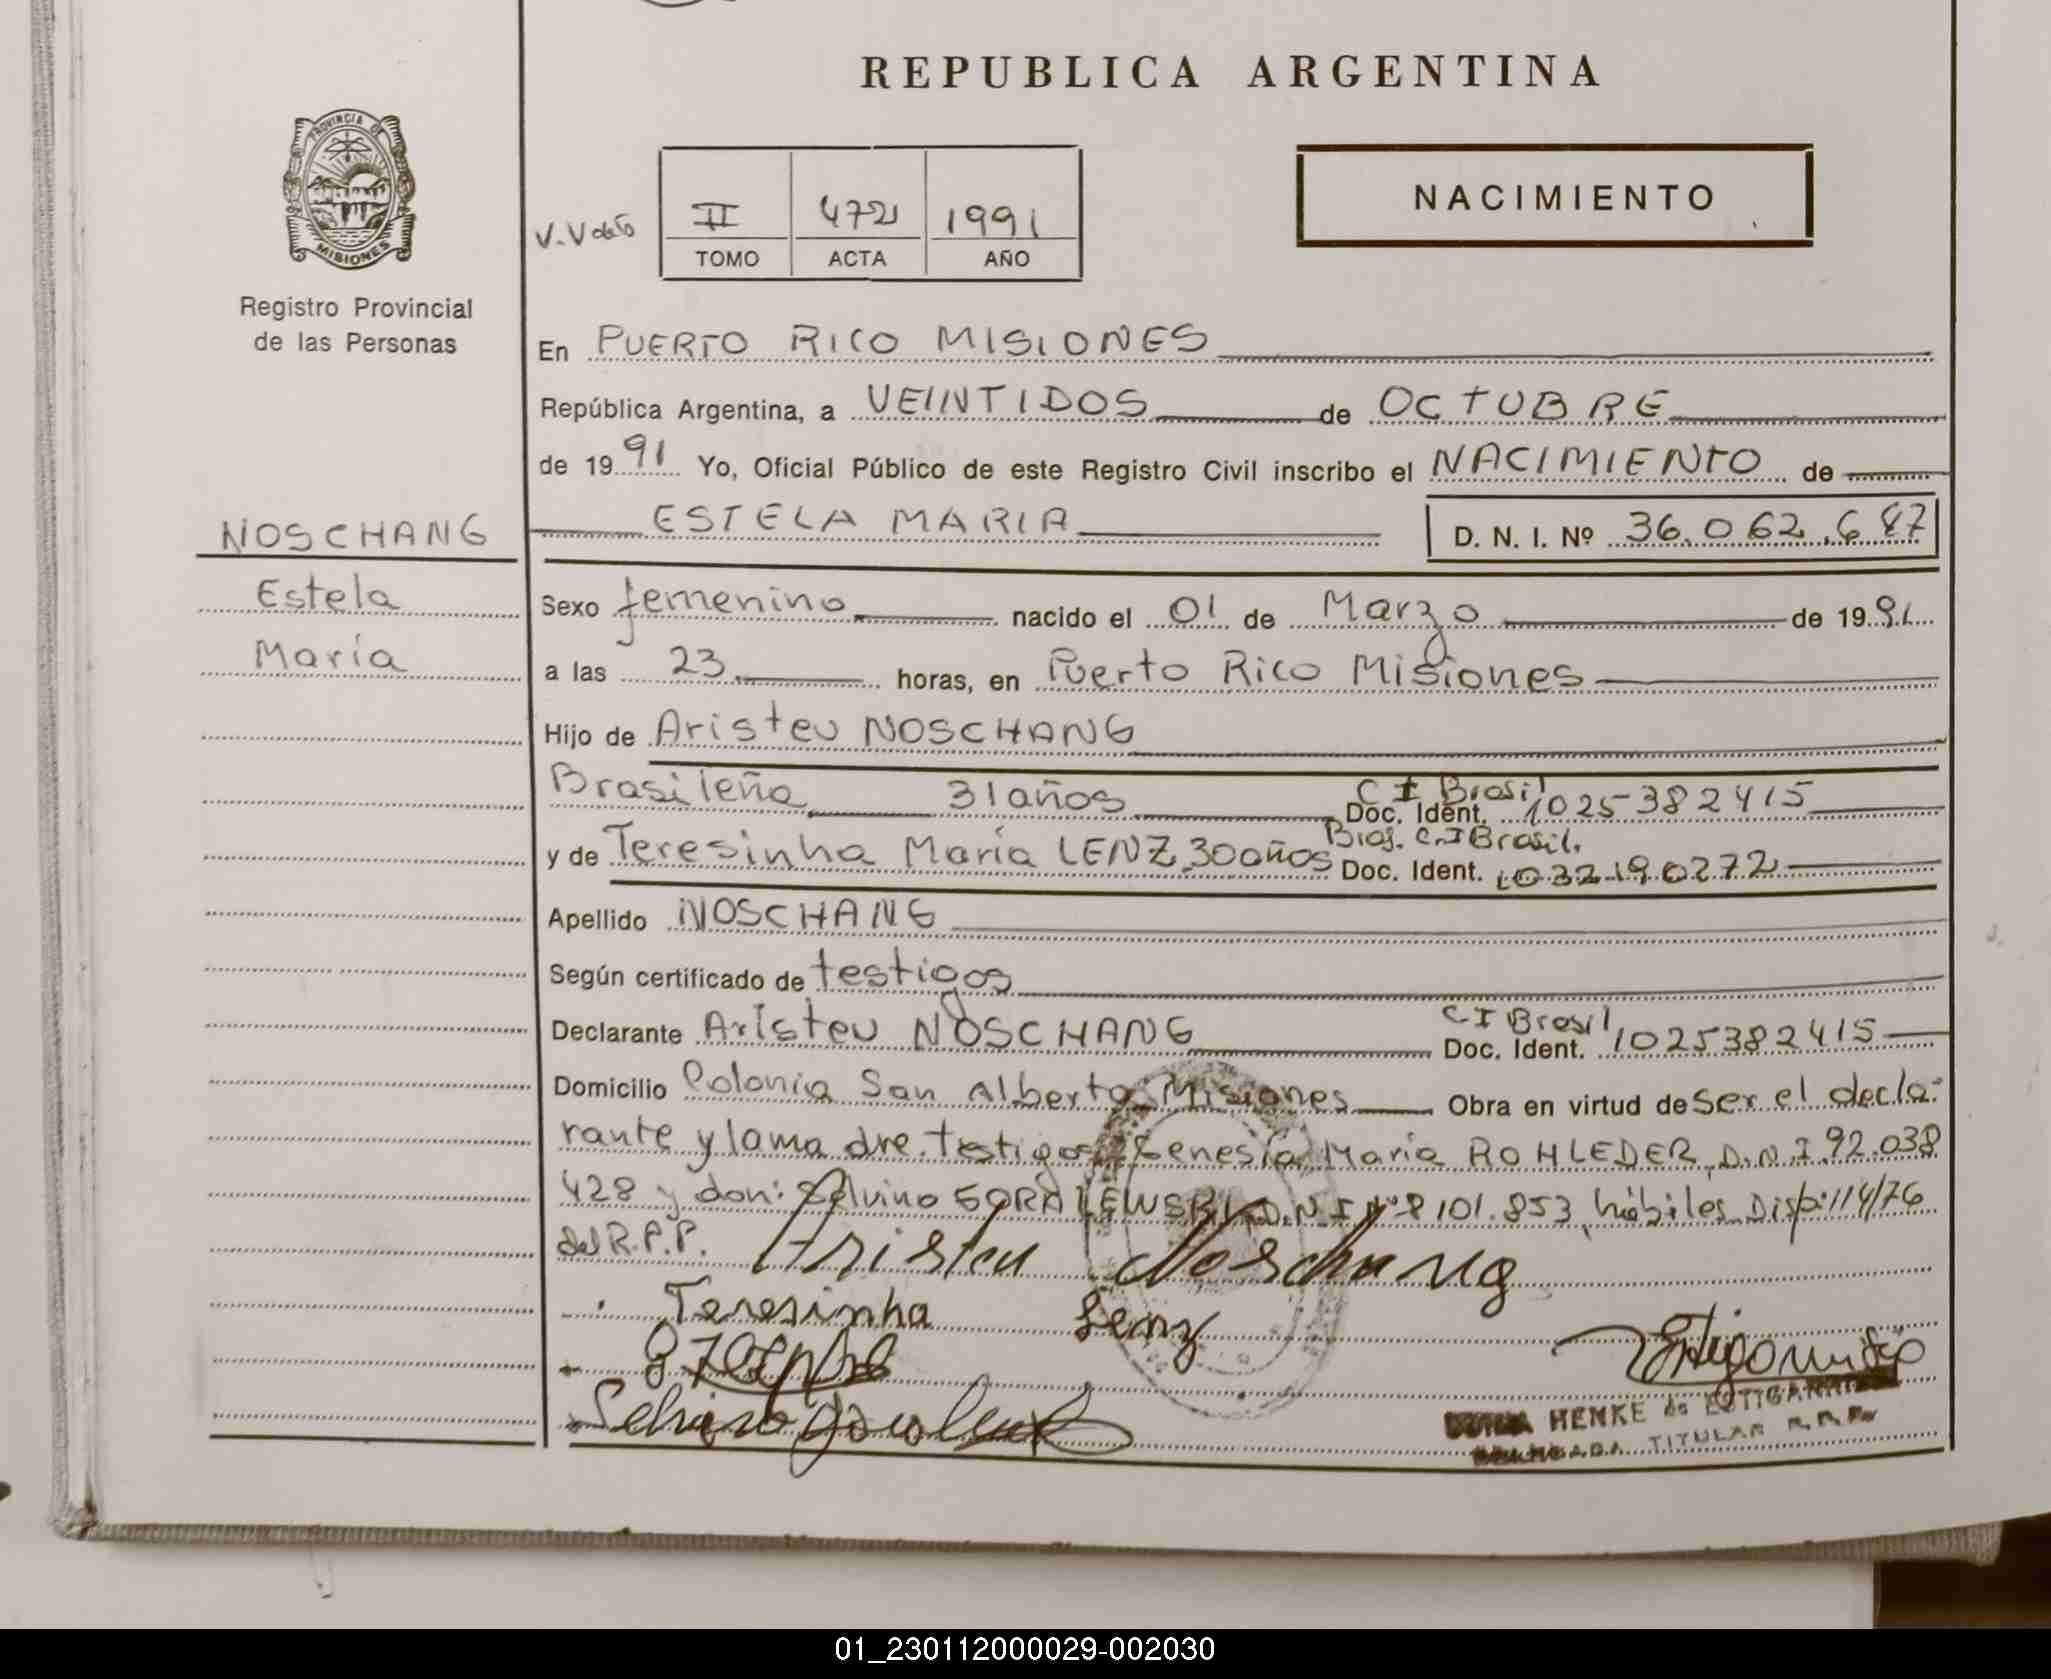 REPUBLICA ARGENTINA
PROVINCIA DE
MISIONES
Registro Provincial
de las Personas
NACIMIENTO
II 472 1991
TOMO ACTA AÑO
En PUERTO RICO MISIONES
República Argentina, a VEINTIDOS de OCTUBRE
de 1991 Yo, Oficial Público de este Registro Civil inscribo el NACIMIENTO de
NOSCHANG
Estela
María
ESTELA MARIA D. N. I. Nº 36.062.687
Sexo femenino nacido el 01 de Marzo de 1991
a las 23 horas, en Puerto Rico Misiones
Hijo de Aristeu NOSCHANG
Brasileña 31 años C I Brasil Doc. Ident. 1025382415
y de Teresinha María LENZ 30 años Bras. C.I Brasil. Doc. Ident. 1032190272
Apellido NOSCHANG
Según certificado de testigos
Declarante Aristeu NOSCHANG C I Brasil Doc. Ident. 1025382415
Domicilio Colonia San Alberto Misiones Obra en virtud de ser el decla-
rante y la madre. testigos María ROHLEDER D.N.I 92.038
428 y don: Selvino GORALEWSKI D.N.I Nº 8101.853 hábiles Disp: 114/76
del R.P.P.
Aristeu Noschang
Teresinha Lenz
HENKE de
TITULAR R.P.P.
01_230112000029-002030